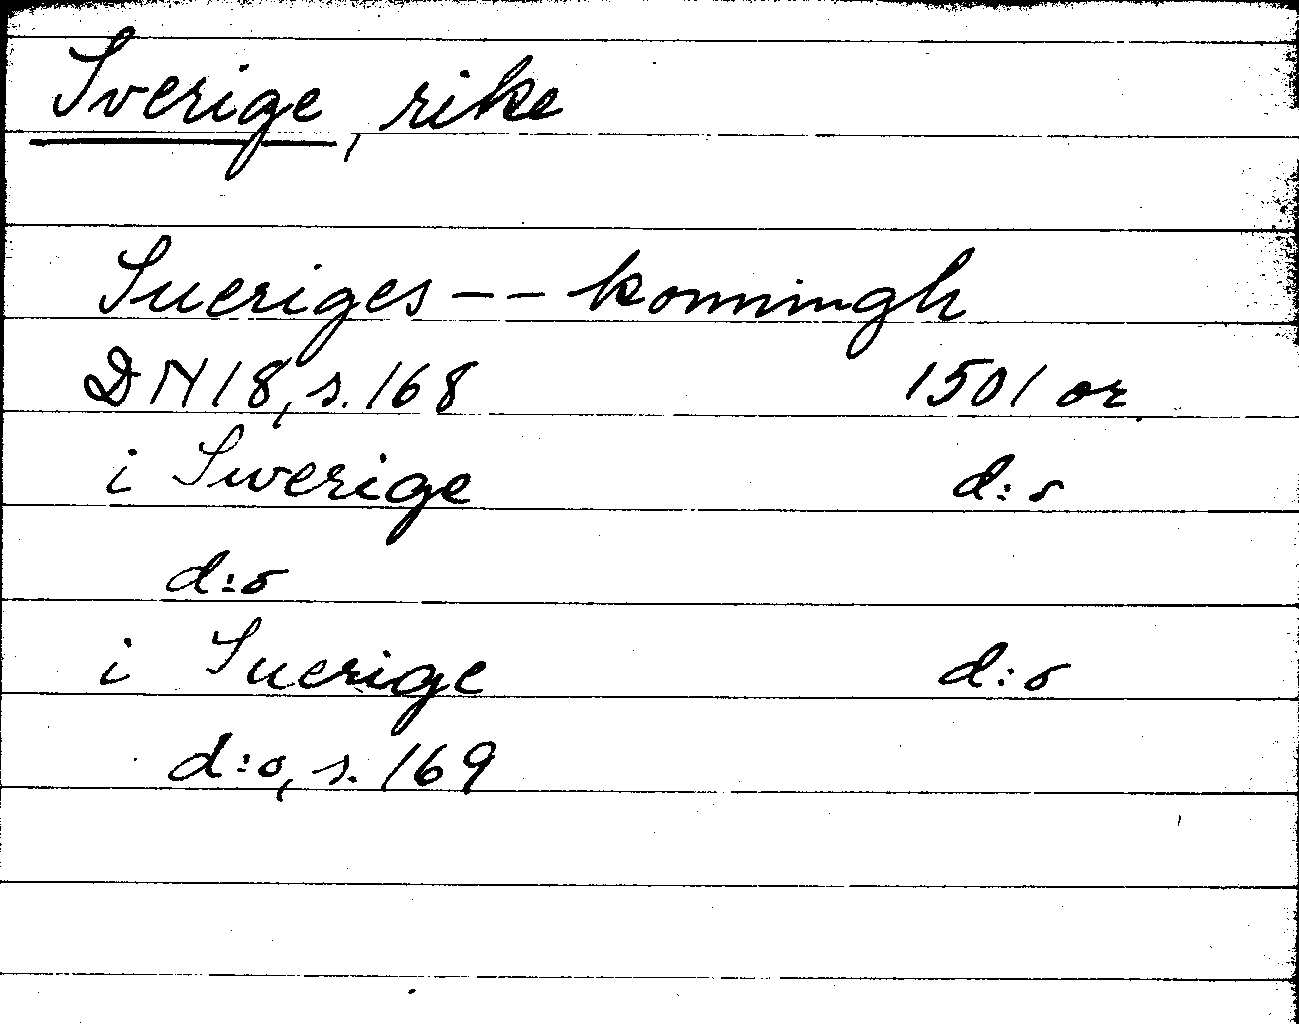 Sverige, rike
Sueriges -- konningh
DN 18, s. 168 1501 or.
i Swerige d:o
d:o
i Suerige d:o
d:o, s. 169